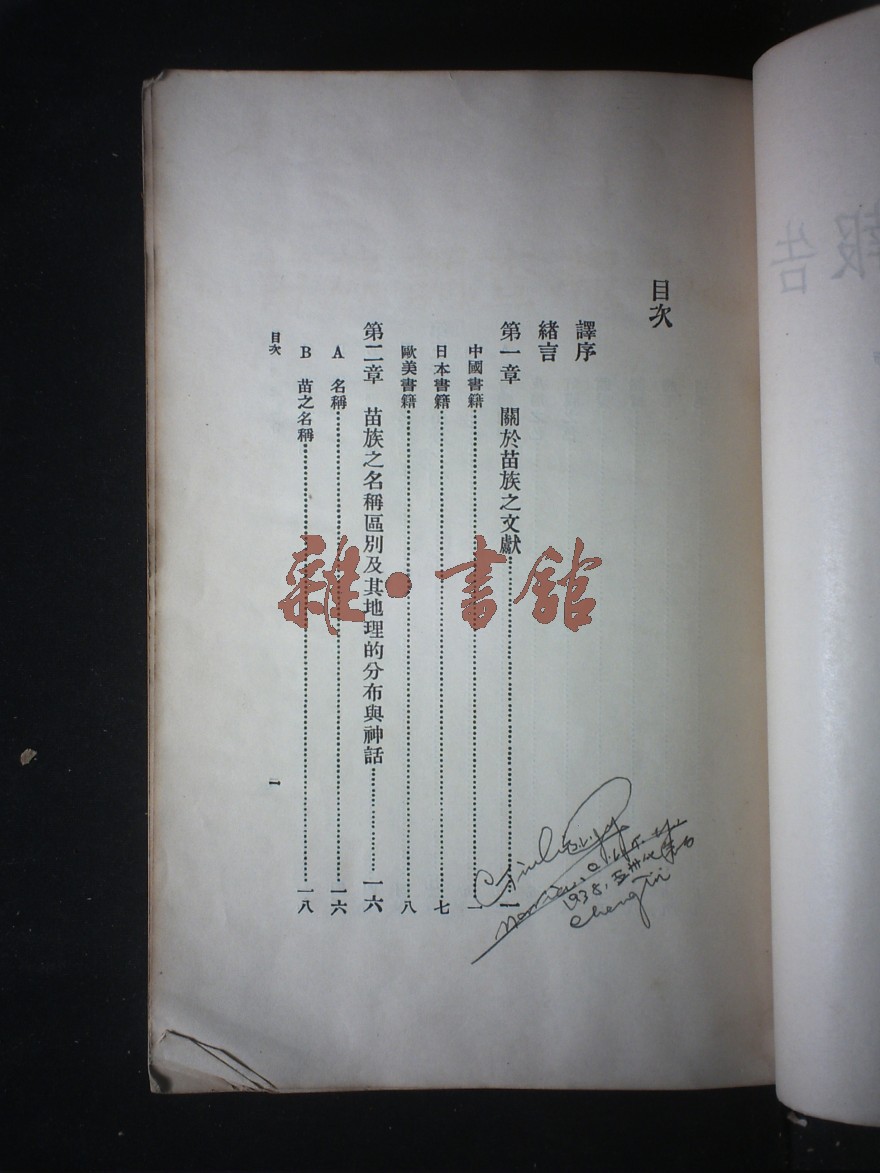 報告
目次
譯序
緒言
第一章 關於苗族之文獻………一
中國書籍………一
日本書籍………七
歐美書籍………八
第二章 苗族之名稱區別及其地理的分布與神話………一六
A 名稱………一六
B 苗之名稱………一八
目次 一
雜·書館
1938.
Cheng